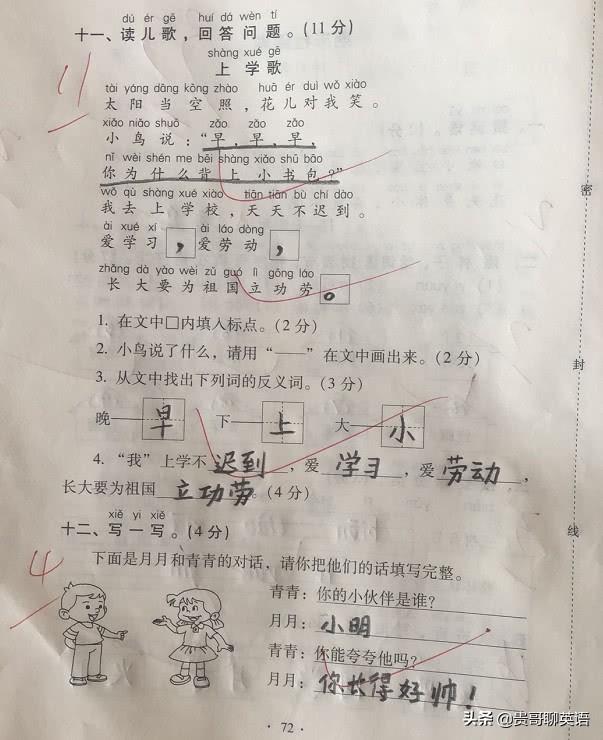 dú ér gē huí dá wèn tí
十一、读儿歌，回答问题。(11 分)
11
shàng xué gē
上 学 歌
tài yáng dāng kōng zhào huā ér duì wǒ xiào
太 阳 当 空 照，花 儿 对 我 笑。
xiǎo niǎo shuō zǎo zǎo zǎo
小 鸟 说：“早，早，早，
nǐ wèi shén me bēi shàng xiǎo shū bāo
你 为 什 么 背 上 小 书 包？”
wǒ qù shàng xué xiào tiān tiān bù chí dào
我 去 上 学 校，天 天 不 迟 到。
ài xué xí ài láo dòng
爱 学 习 ， 爱 劳 动 ，
zhǎng dà yào wèi zǔ guó lì gōng láo
长 大 要 为 祖 国 立 功 劳 。
1. 在文中□内填入标点。(2 分)
2. 小鸟说了什么，请用“——”在文中画出来。(2 分)
3. 从文中找出下列词的反义词。(3 分)
晚—早 下—上 大—小
4. “我”上学不 迟到 ，爱 学习 ，爱 劳动 ，
长大要为祖国 立功劳 。(4 分)
xiě yi xiě
十二、写 一 写。(4 分)
4
下面是月月和青青的对话，请你把他们的话填写完整。
青青：你的小伙伴是谁？
月月：小明
青青：你能夸夸他吗？
月月：你长得好帅！
· 72 ·
密
封
线
头条 @贵哥聊英语